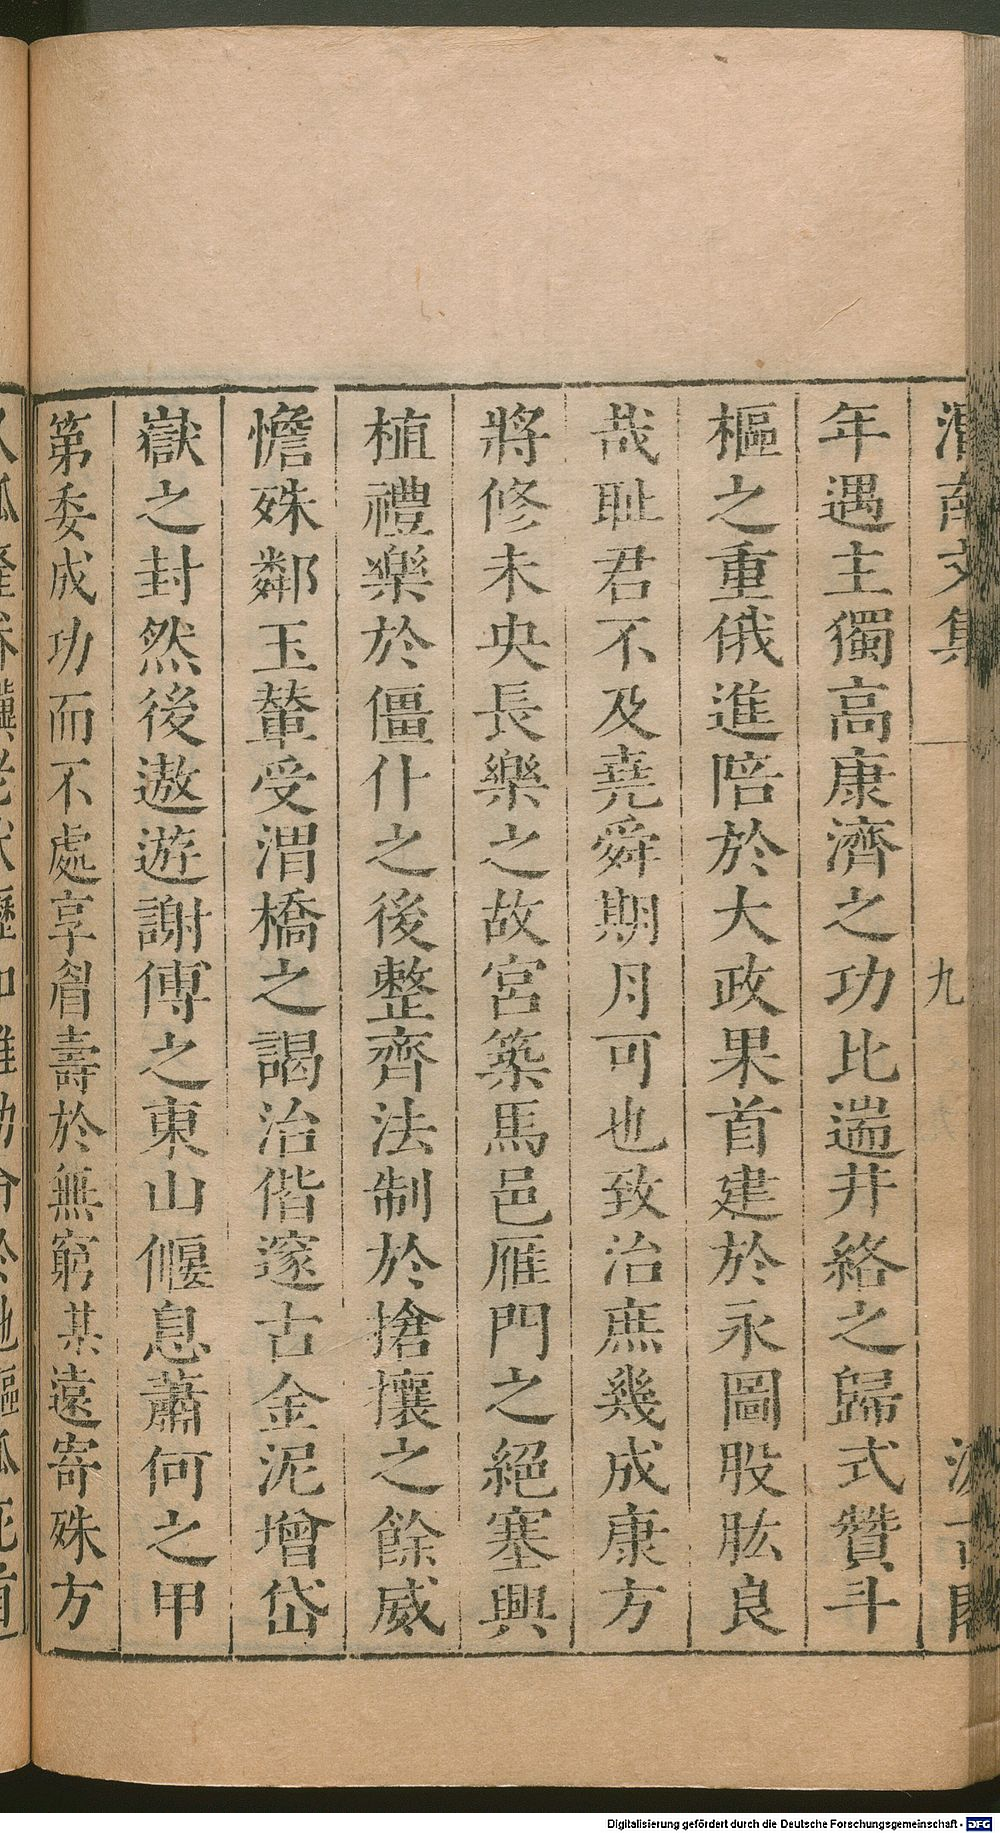 渭南文集 九 汲古閣
年遇主獨高康濟之功比遄井絡之歸式贊斗
樞之重俄進陪於大政果首建於永圖股肱良
哉耻君不及堯舜期月可也致治庶幾成康方
將修未央長樂之故宮築馬邑雁門之絕塞興
植禮樂於僵仆之後整齊法制於搶攘之餘威
憺殊鄰玉輦受渭橋之謁治偕邃古金泥增岱
嶽之封然後遨遊謝傅之東山偃息蕭何之甲
第委成功而不處享眉壽於無窮某遠寄殊方
Digitalisierung gefördert durch die Deutsche Forschungsgemeinschaft - DFG